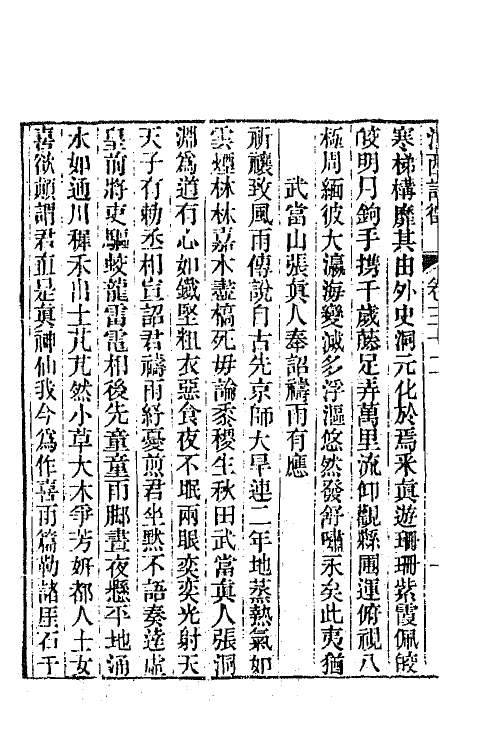 江西詩徵　卷三十二
寒梯構靡其由外史洞元化於焉釆眞遊珊珊紫霞佩皎
皎明月鉤手携千歲藤足弄萬里流仰觀縣圃運俯視八
極周緬彼大瀛海變減多浮漚悠然發舒嘯永矣此夷猶
武當山張眞人奉詔禱雨有應
祈禳致風雨傳說自古先京師大旱連二年地蒸熱氣如
雲煙林林嘉木盡槁死毋論黍稷生秋田武當眞人張洞
淵為道有心如鐵堅粗衣惡食夜不眠兩眼奕奕光射天
天子有勅丞相宣詔君禱雨紓憂煎君坐默不語奏達虛
皇前將吏驅蛟龍雷電相後先童童雨脚晝夜懸平地涌
水如通川穉禾出土芃芃然小草大木爭芳妍都人士女
喜欲顛謂君血是眞神仙我今為作喜雨篇勒諸厓石千